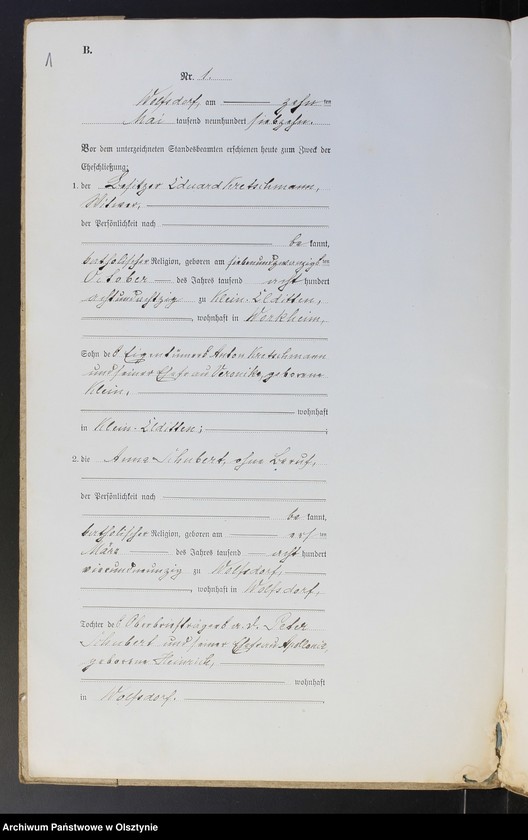 B.
1
Nr. 1.
Wolfsdorf, am zehn ten
Mai tausend neunhundert siebzehn.
Vor dem unterzeichneten Standesbeamten erschienen heute zum Zweck der
Eheschließung:
1. der Besitzer Eduard Kretschmann,
Witwer,
der Persönlichkeit nach
be kannt,
katholischer Religion, geboren am siebenundzwanzigs ten
October des Jahres tausend acht hundert
achtundachtzig zu Klein-Elditten,
, wohnhaft in Workheim,
Sohn des Eigentümers Anton Kretschmann
und seiner Ehefrau Veronika, geborene
Klein,
wohnhaft
in Klein-Elditten;
2. die Anna Schubert, ohne Beruf,
der Persönlichkeit nach
be kannt,
katholischer Religion, geboren am ten
März des Jahres tausend acht hundert
vierundneunzig zu Wolfsdorf,
, wohnhaft in Wolfsdorf,
Tochter des Oberbriefträgers a. D. Peter
Schubert und seiner Ehefrau Apollonia,
geborene Heinrich,
wohnhaft
in Wolfsdorf.
Archiwum Państwowe w Olsztynie